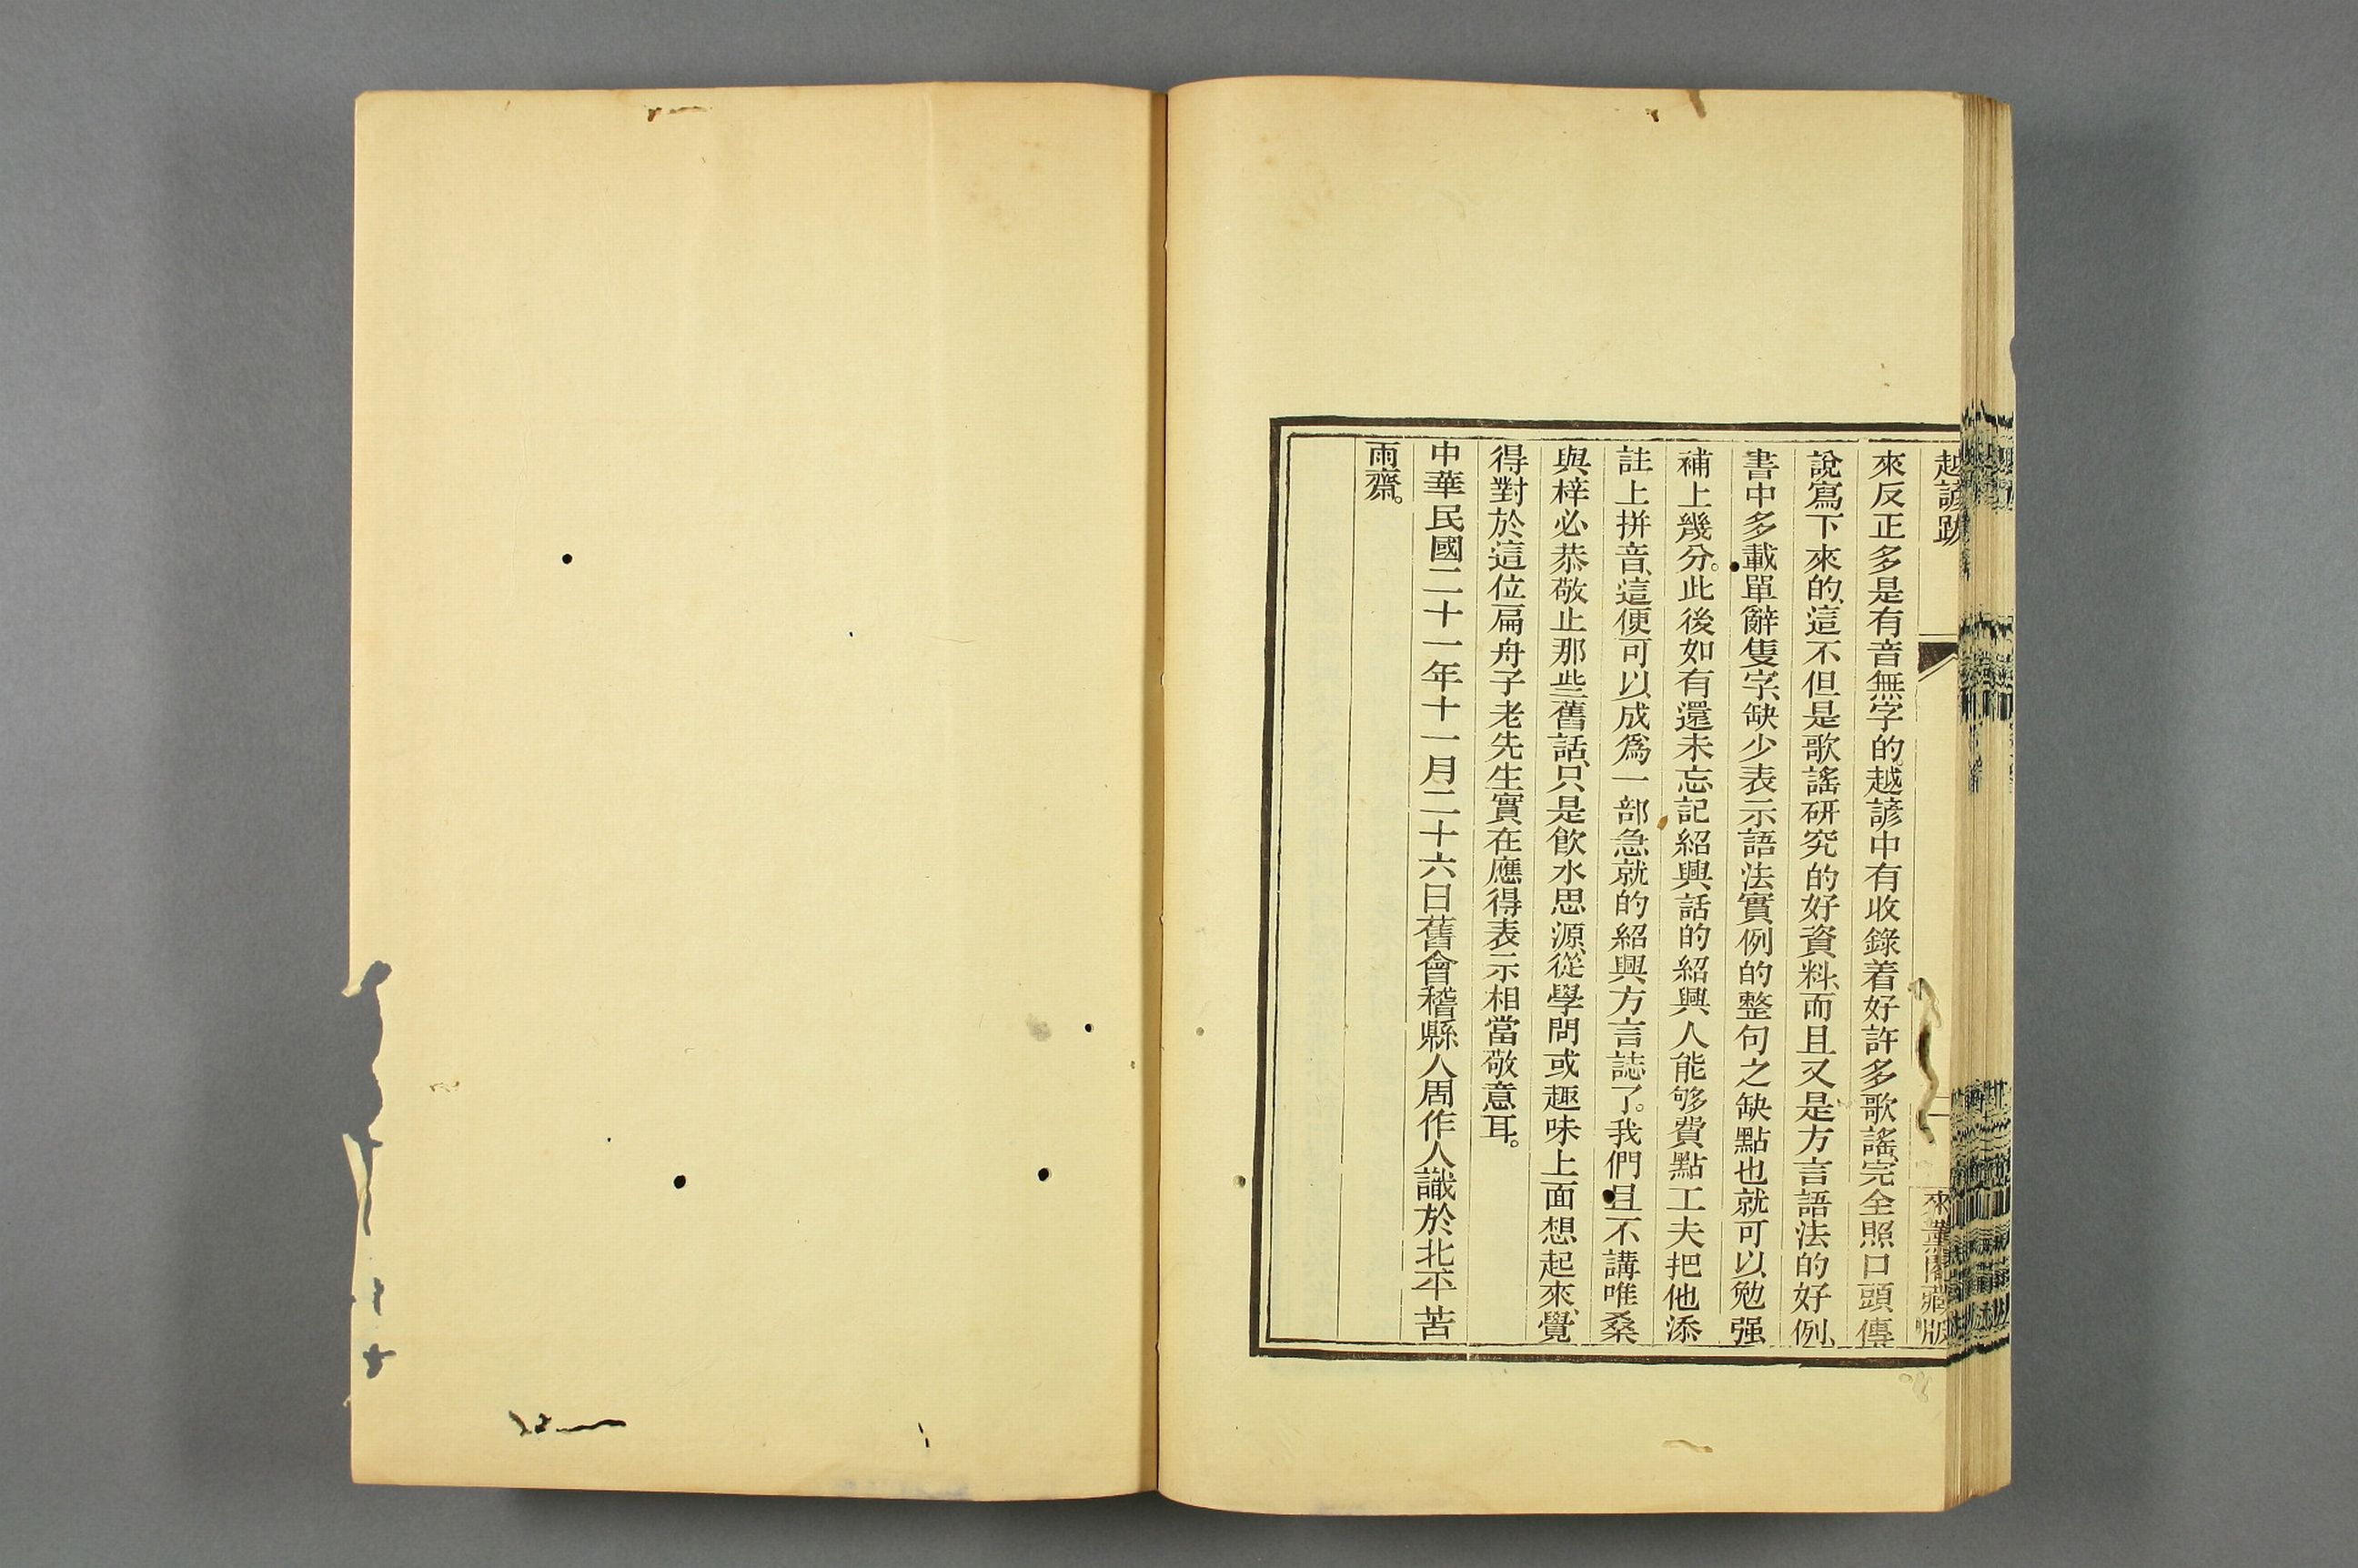 越諺跋
二
來薰閣藏版
來反正多是有音無字的、越諺中有收錄着好許多歌謠、完全照口頭傳
說寫下來的、這不但是歌謠研究的好資料、而且又是方言語法的好例、
書中多載單辭隻字、缺少表示語法實例的整句之缺點也就可以勉强
補上幾分。此後如有還未忘記紹興話的紹興人能够費點工夫把他添
註上拼音、這便可以成爲一部急就的紹興方言誌了。我們且不講唯桑
與梓必恭敬止那些舊話、只是飮水思源、從學問或趣味上面想起來、覺
得對於這位扁舟子老先生實在應得表示相當敬意耳。
中華民國二十一年十一月二十六日舊會稽縣人周作人識於北平苦
雨齋。